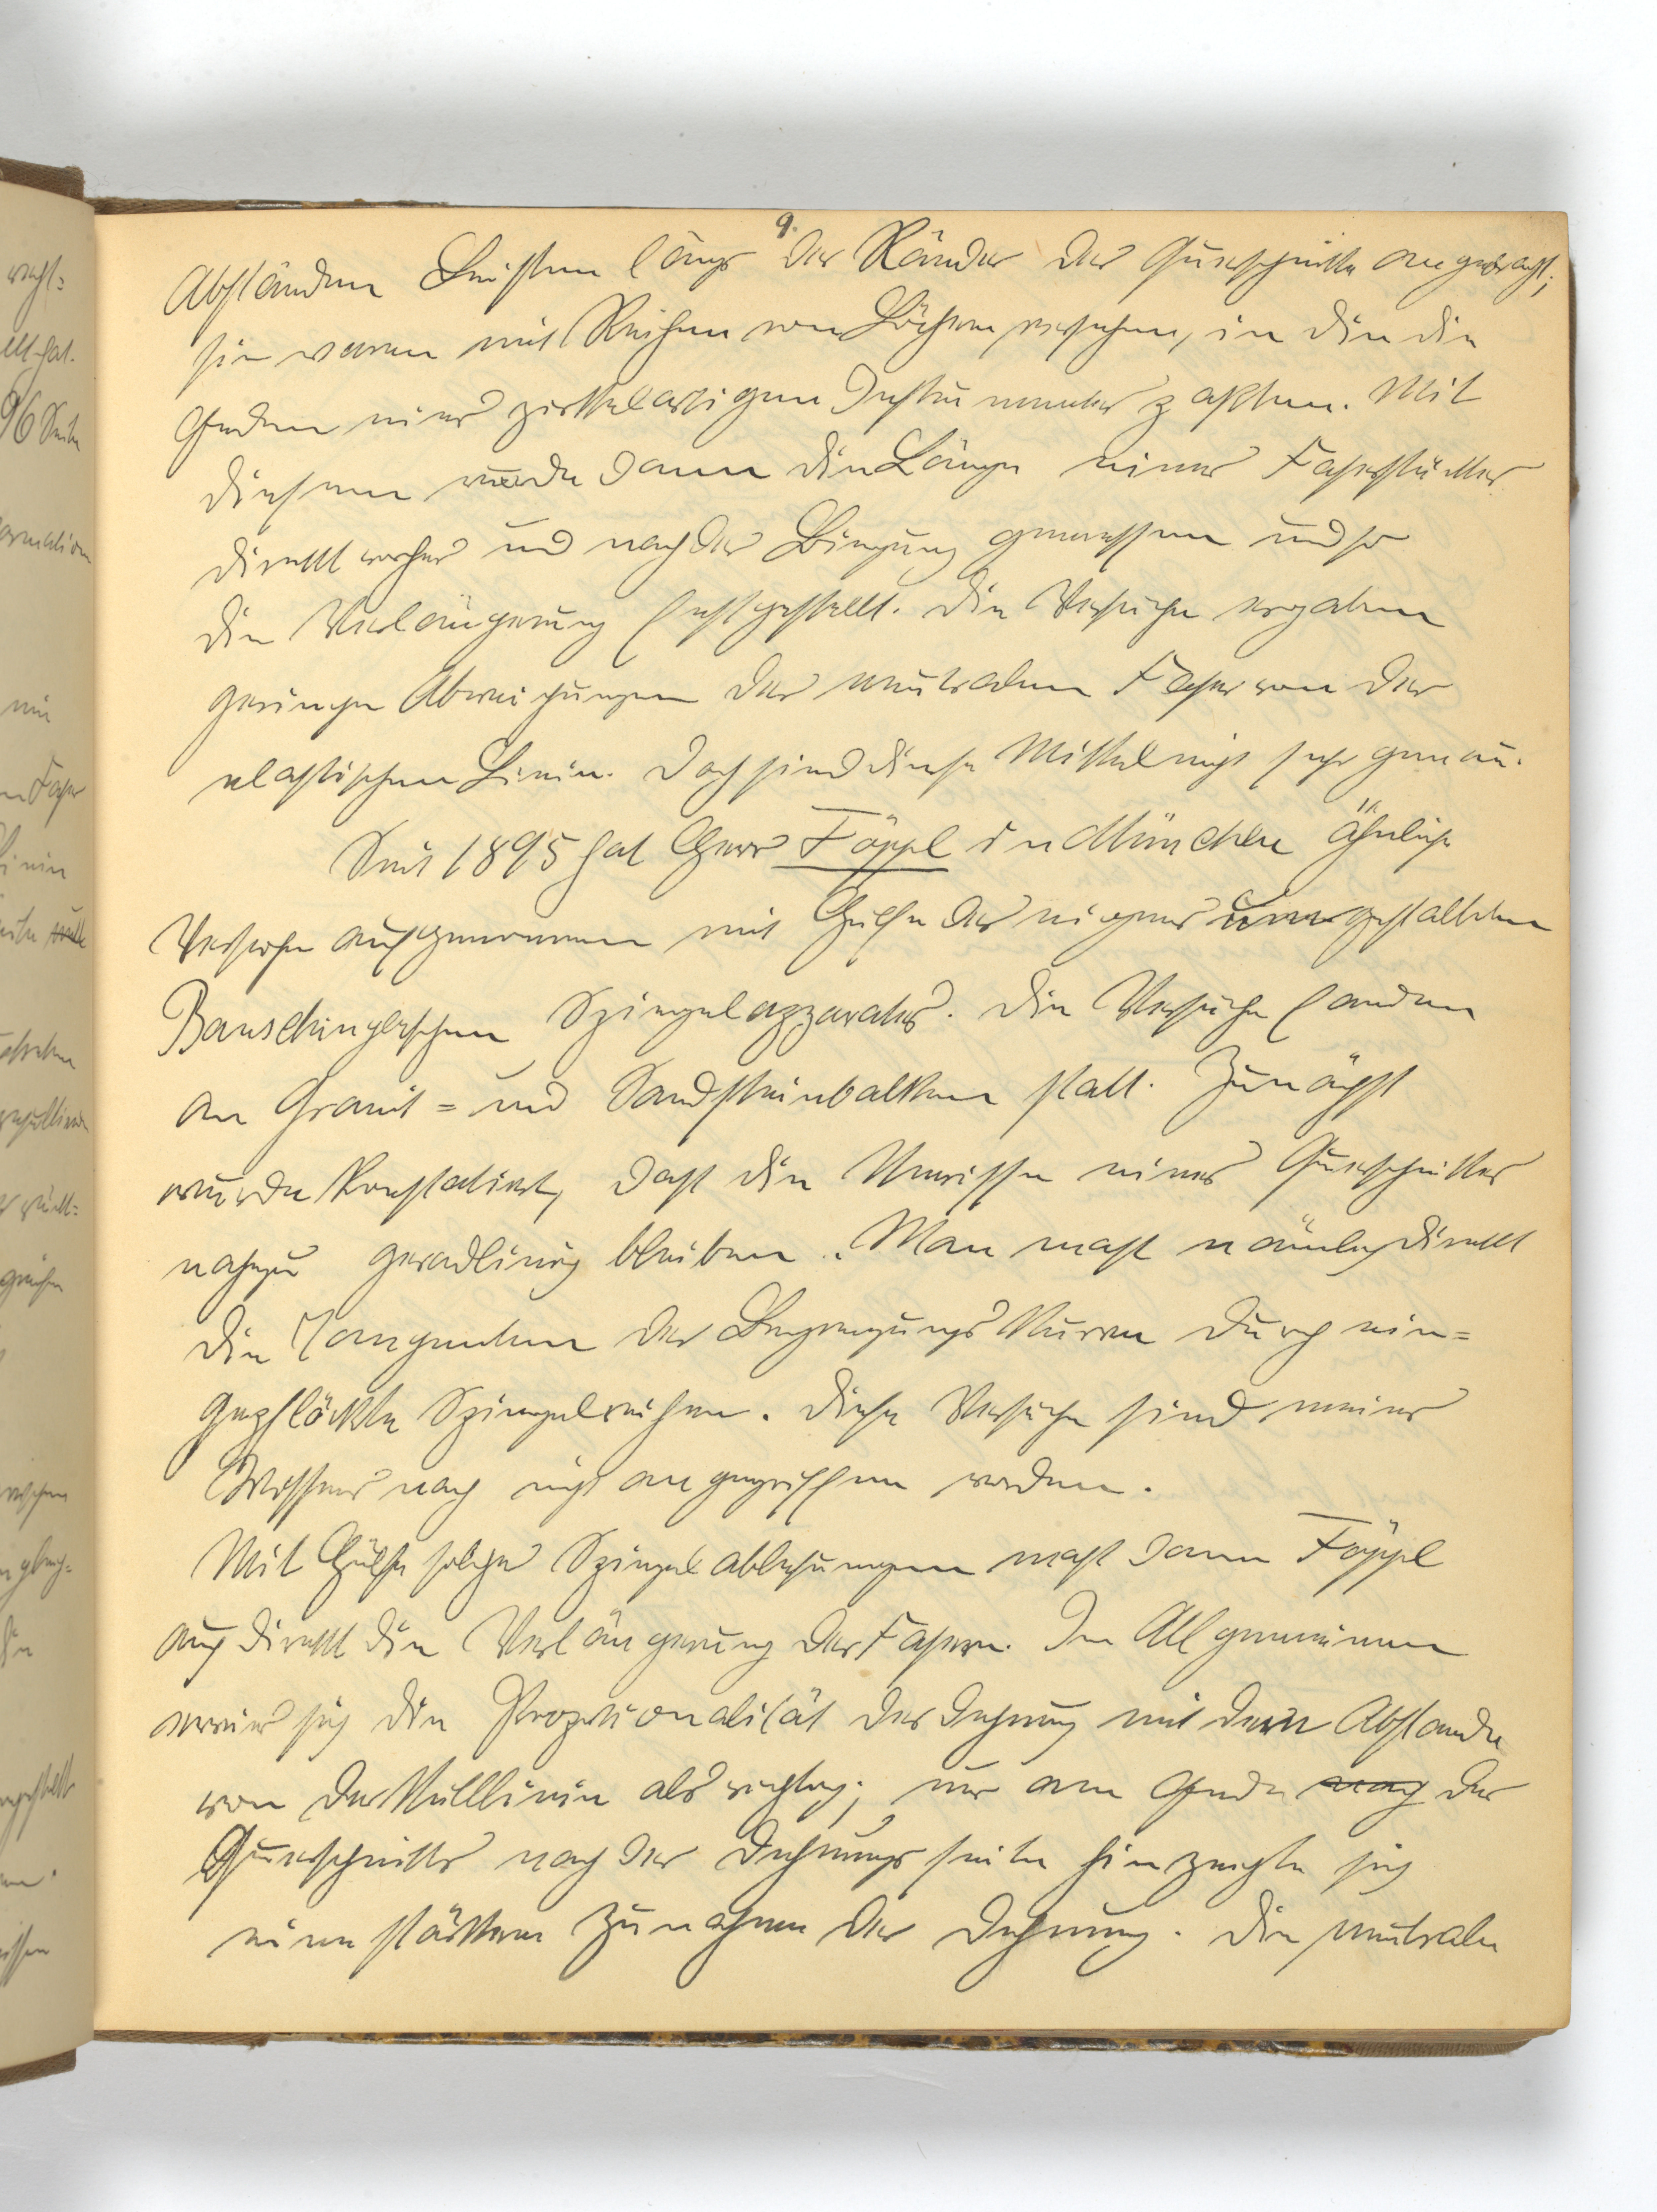 9.
Abständen Leisten längs der Ränder der Querschnitte angebracht;
sie waren mit Reihen von Löchern versehen, in die die
Enden eines zirkelartigen Instrumentes paßten. Mit
diesem wurde dann die Länge eines Faserstückes
direkt vorher und nach der Biegung gemessen und so
die Verlängerung festgestellt. Die Versuche ergaben
geringe Abweichungen der neutralen Faser von der
elastischen Linie. Doch sind diese Mittel nicht sehr genau.
Seit 1895 hat Herr Föppl in München ähnliche
Versuche aufgenommen mit Hülfe des eigens umgestalteten
Bauschingerschen Spiegelapparates. Die Versuche fanden
an Granit= und Sandsteinbalken statt. Zunächst
wurde konstatiert, daß die Umrisse eines Querschnittes
nahezu geradlinig bleiben. Man maß nämlich direkt
die Tangenten der Begrenzungskurven durch ein=
gepflöckte Spiegelreihen. Diese Versuche sind meines
Wissens noch nicht angegriffen worden.
Mit Hülfe solcher Spiegelablesungen maß dann Föppl
auch direkt die Verlängerung der Fasern. Im Allgemeinen
erwies sich die Proportionalität der Dehnung mit dem Abstande
von der Nulllinie als richtig; nur am Ende der
Querschnitts nach der Dehnungsseite hin zeigte sich
eine stärkere Zunahme der Dehnung. Die neutrale